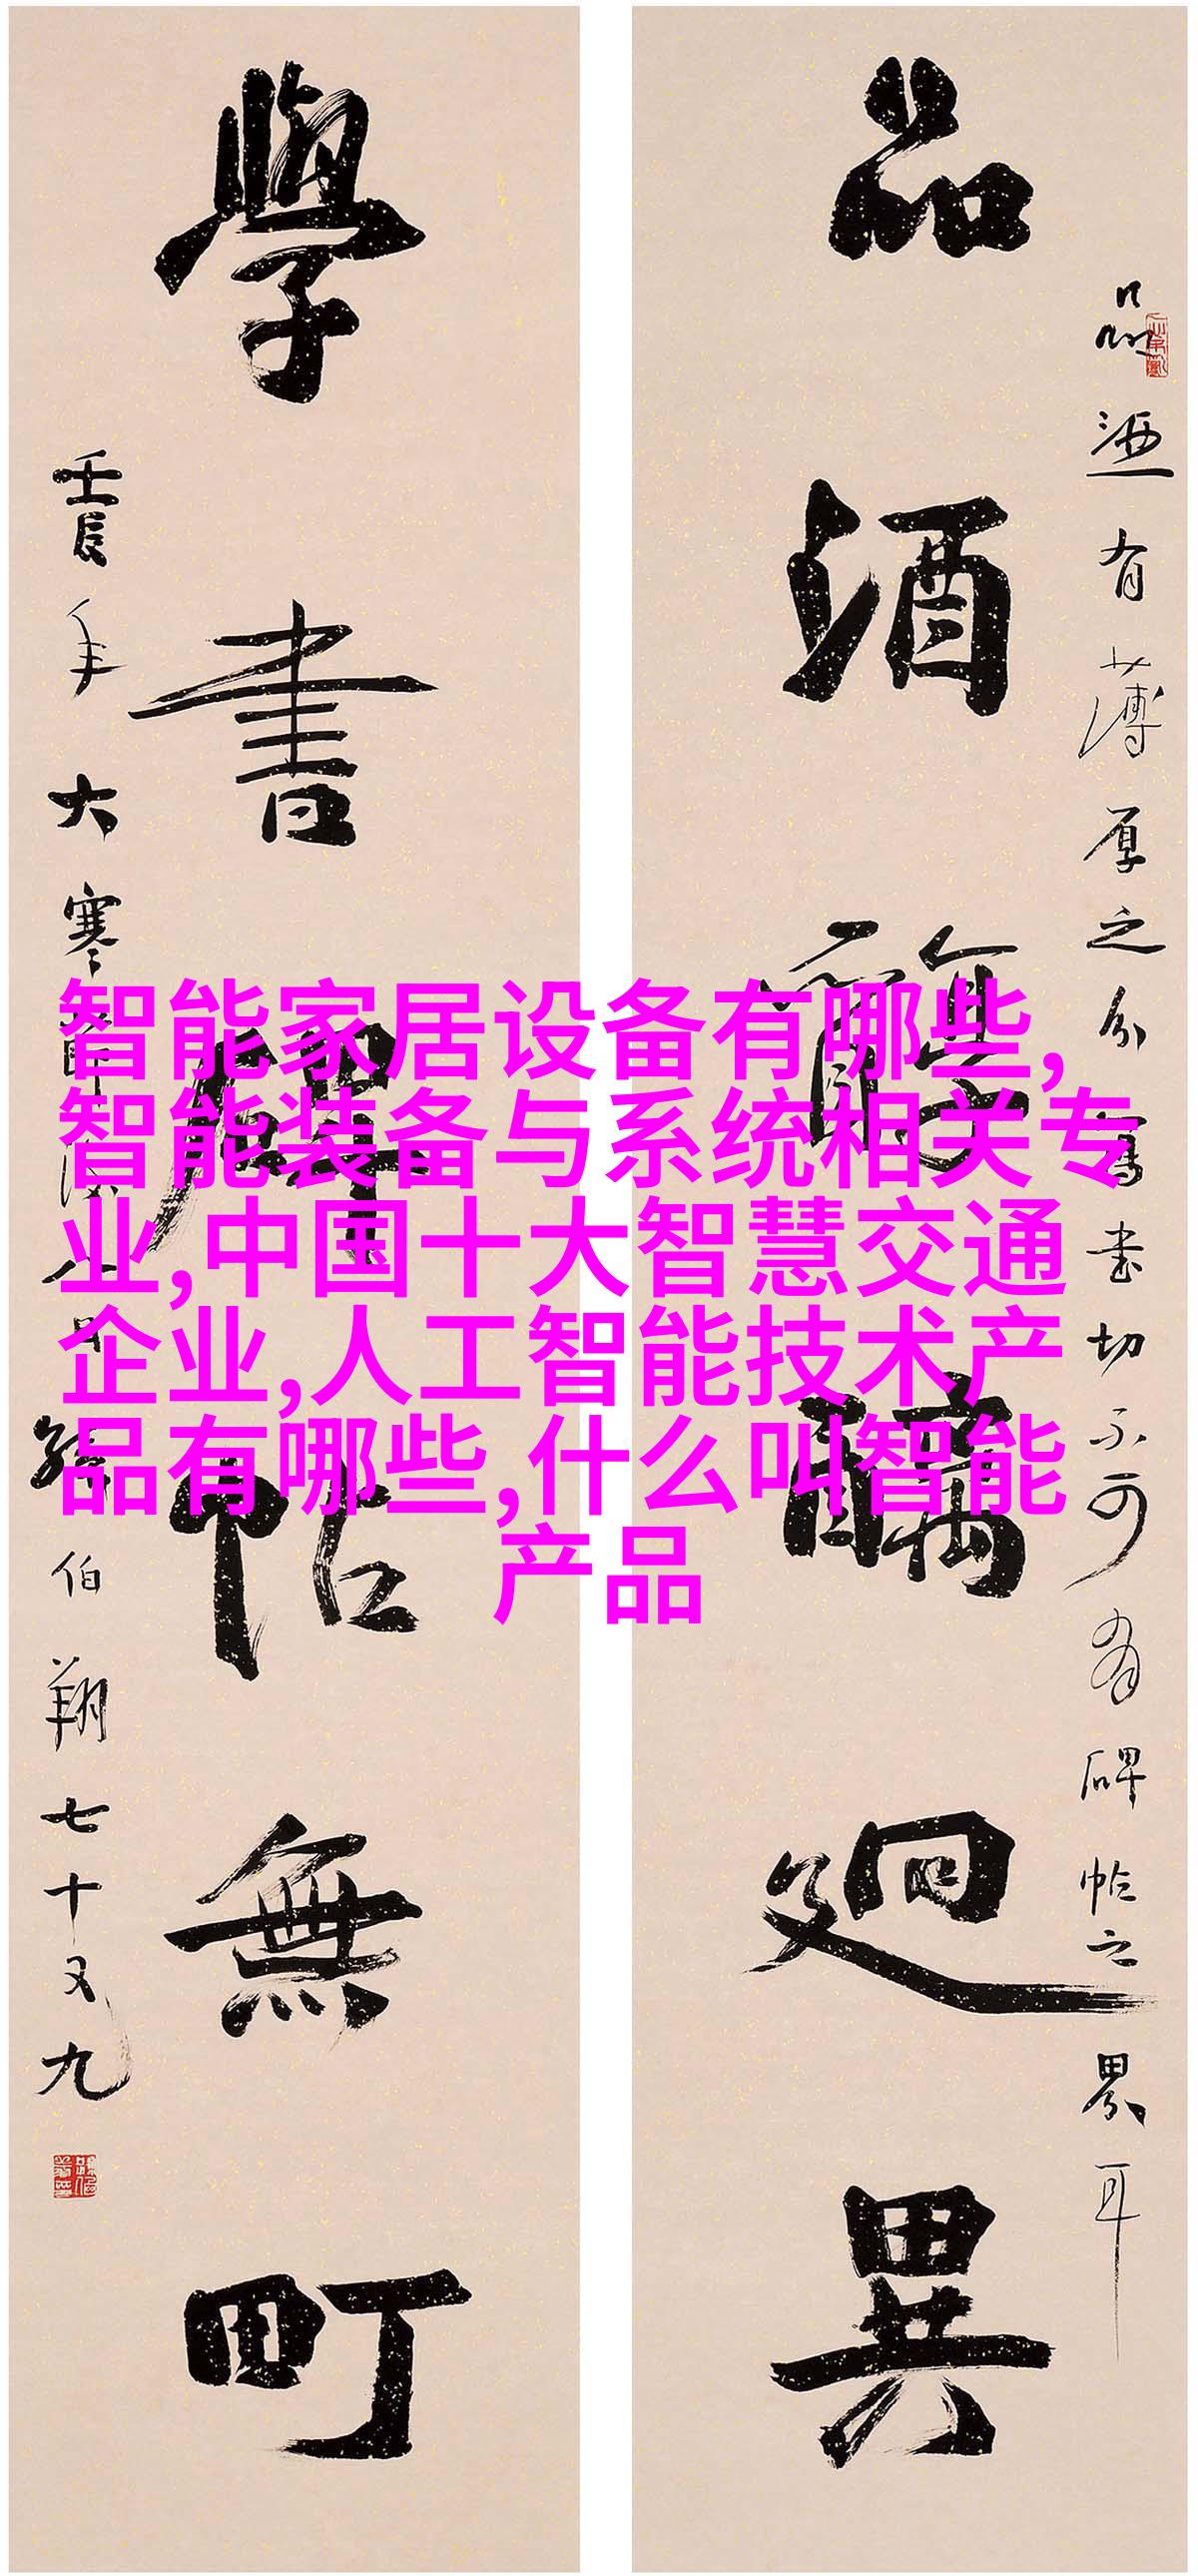 品酒有薄厚之分寫書切不可有碑帖之界耳
品酒醨廻異
學書碑帖無町
壬辰年大寒節後八日孫伯翔七十又九
智能家居设备有哪些,
智能装备与系统相关专
业,中国十大智慧交通
企业,人工智能技术产
品有哪些,什么叫智能
产品